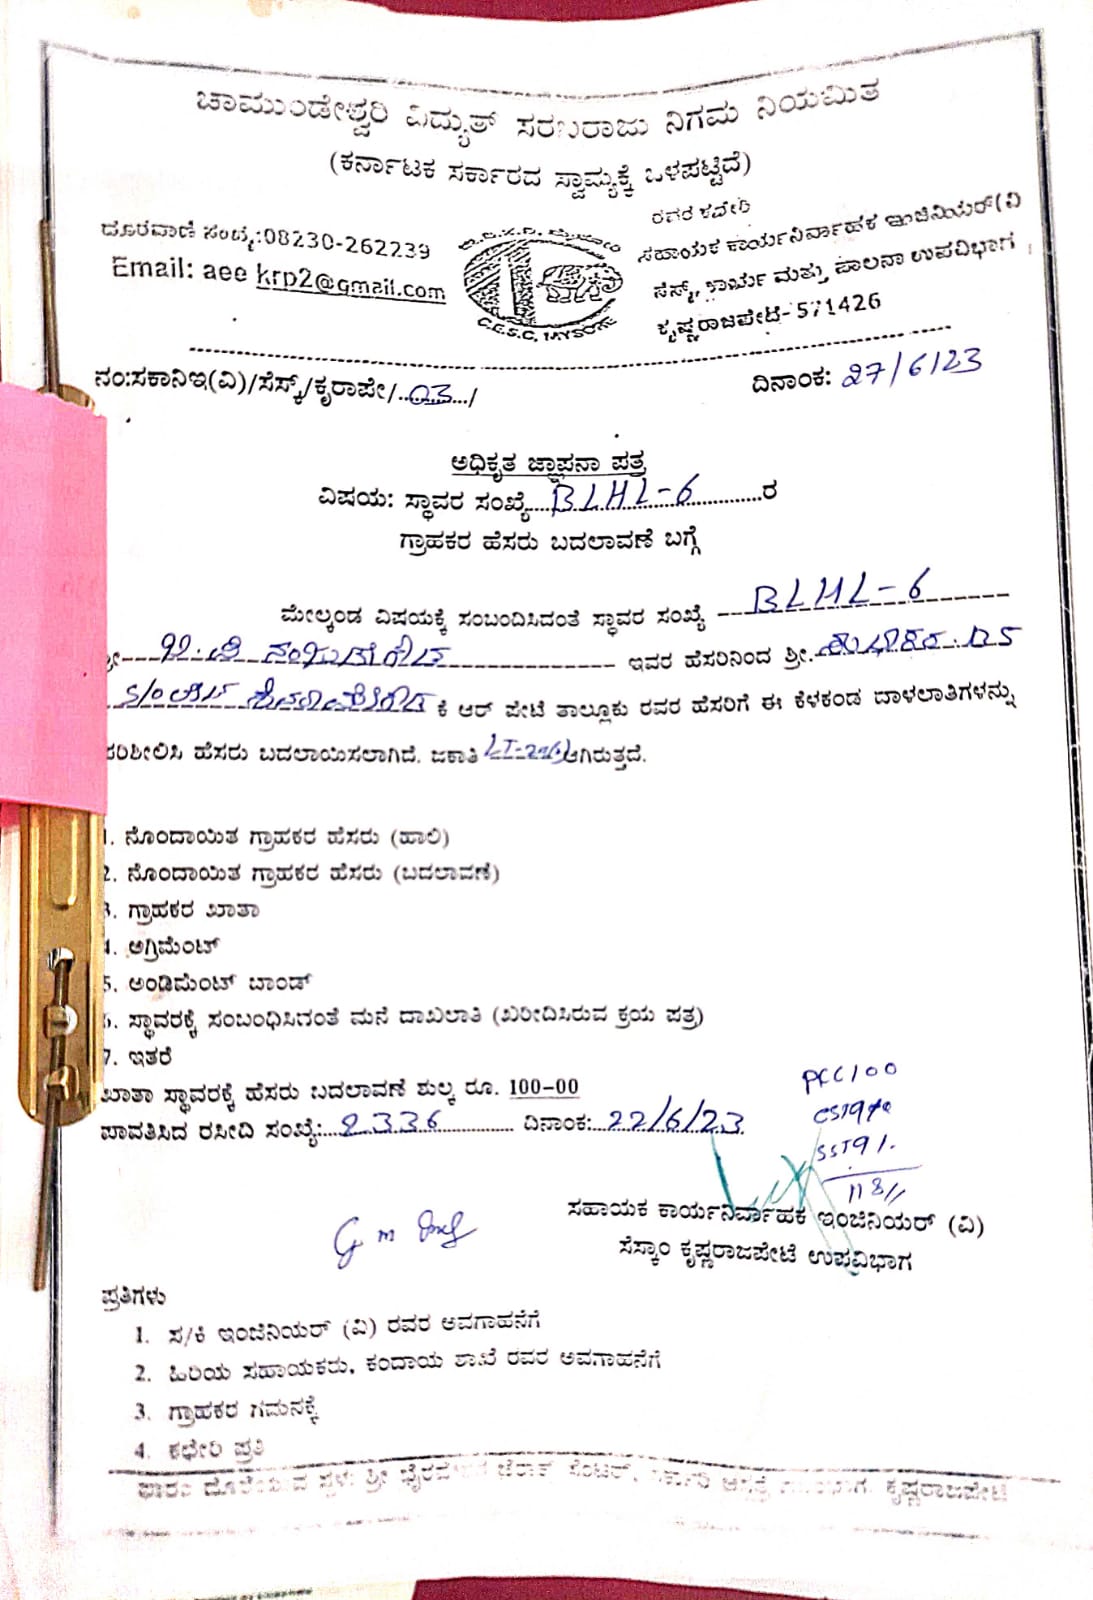 ಚಾಮುಂಡೇಶ್ವರಿ ವಿದ್ಯುತ್ ಸರಬರಾಜು ನಿಗಮ ನಿಯಮಿತ
(ಕರ್ನಾಟಕ ಸರ್ಕಾರದ ಸ್ವಾಮ್ಯಕ್ಕೆ ಒಳಪಟ್ಟಿದೆ)
ರವರ ಕಛೇರಿ
ದೂರವಾಣಿ ಸಂಖ್ಯೆ:08230-262239
ಸಹಾಯಕ ಕಾರ್ಯನಿರ್ವಾಹಕ ಇಂಜಿನಿಯರ್(ವಿ
Email: aee krp2@gmail.com
ಸೆಸ್ಕ್, ಕಾರ್ಯ ಮತ್ತು ಪಾಲನಾ ಉಪವಿಭಾಗ
ಕೃಷ್ಣರಾಜಪೇಟೆ-571426
C.E.S.C, MYSORE
ನಂ:ಸಕಾನಿಇ(ವಿ)/ಸೆಸ್ಕ್/ಕೃರಾಪೇ/..03.../
ದಿನಾಂಕ: 27/6/23
ಅಧಿಕೃತ ಜ್ಞಾಪನಾ ಪತ್ರ
ವಿಷಯ: ಸ್ಥಾವರ ಸಂಖ್ಯೆ....BLHL-6............ರ
ಗ್ರಾಹಕರ ಹೆಸರು ಬದಲಾವಣೆ ಬಗ್ಗೆ
ಮೇಲ್ಕಂಡ ವಿಷಯಕ್ಕೆ ಸಂಬಂದಿಸಿದಂತೆ ಸ್ಥಾವರ ಸಂಖ್ಯೆ BLHL-6
ಇವರ ಹೆಸರಿನಿಂದ ಶ್ರೀ.
S/O ಕೆ ಆರ್ ಪೇಟೆ ತಾಲ್ಲೂಕು ರವರ ಹೆಸರಿಗೆ ಈ ಕೆಳಕಂಡ ದಾಳಲಾತಿಗಳನ್ನು
ಪರಿಶೀಲಿಸಿ ಹೆಸರು ಬದಲಾಯಿಸಲಾಗಿದೆ. ಜಕಾತಿ ಆಗಿರುತ್ತದೆ.
1. ನೊಂದಾಯಿತ ಗ್ರಾಹಕರ ಹೆಸರು (ಹಾಲಿ)
2. ನೊಂದಾಯಿತ ಗ್ರಾಹಕರ ಹೆಸರು (ಬದಲಾವಣೆ)
3. ಗ್ರಾಹಕರ ಖಾತಾ
4. ಅಗ್ರಿಮೆಂಟ್
5. ಅಂಡಿಮೆಂಟ್ ಬಾಂಡ್
6. ಸ್ಥಾವರಕ್ಕೆ ಸಂಬಂಧಿಸಿದಂತೆ ಮನೆ ದಾಖಲಾತಿ (ಖರೀದಿಸಿರುವ ಕ್ರಯ ಪತ್ರ)
7. ಇತರೆ
ಖಾತಾ ಸ್ಥಾವರಕ್ಕೆ ಹೆಸರು ಬದಲಾವಣೆ ಶುಲ್ಕ ರೂ. 100-00
ಪಾವತಿಸಿದ ರಸೀದಿ ಸಂಖ್ಯೆ:...2336............ ದಿನಾಂಕ:..22/6/23.
118//
ಸಹಾಯಕ ಕಾರ್ಯನಿರ್ವಾಹಕ ಇಂಜಿನಿಯರ್ (ವಿ)
ಸೆಸ್ಕಾಂ ಕೃಷ್ಣರಾಜಪೇಟೆ ಉಪವಿಭಾಗ
ಪ್ರತಿಗಳು
1. ಸ/ಕಿ ಇಂಜಿನಿಯರ್ (ವಿ) ರವರ ಅವಗಾಹನೆಗೆ
2. ಹಿರಿಯ ಸಹಾಯಕರು, ಕಂದಾಯ ಶಾಖೆ ರವರ ಅವಗಾಹನೆಗೆ
3. ಗ್ರಾಹಕರ ಗಮನಕ್ಕೆ
4. ಕಛೇರಿ ಪ್ರತಿ
ಶ್ರೀ ಕೃಷ್ಣರಾಜಪೇಟೆ